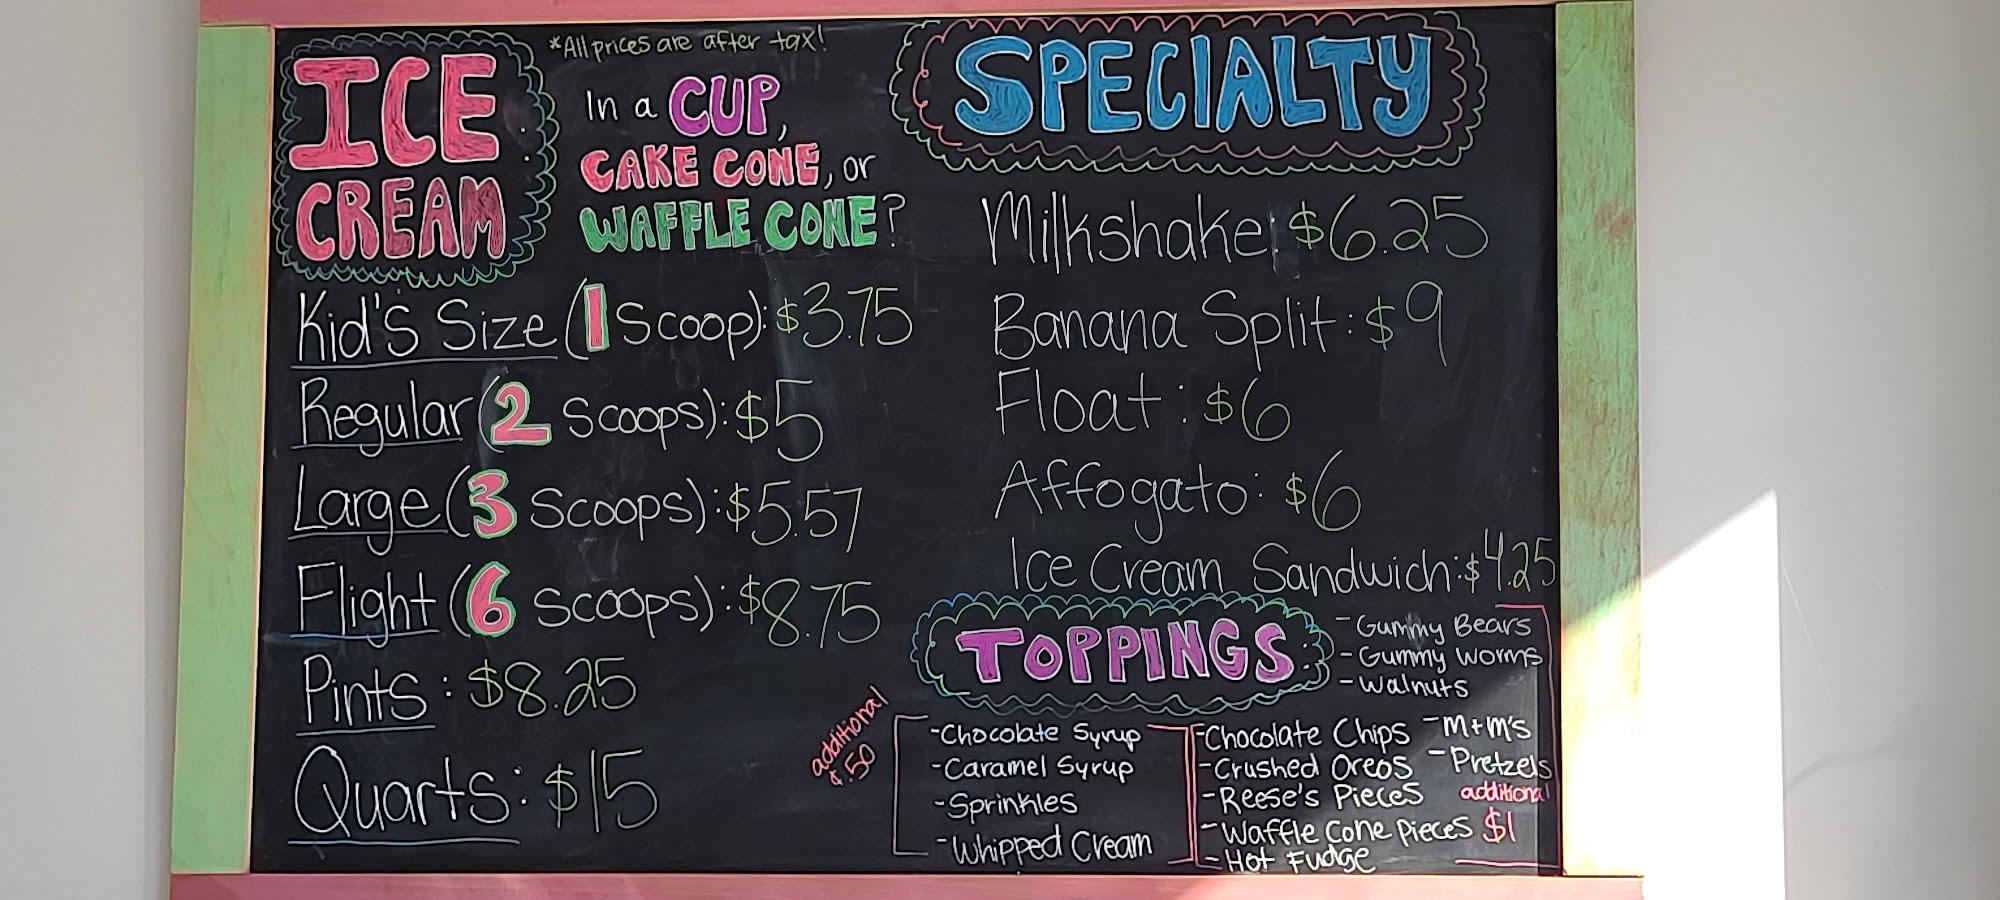 ICE
CREAM
*All prices are after tax!
In a CUP,
CAKE CONE, or
WAFFLE CONE?
Kid's Size (1 Scoop): $3.75
Regular (2 Scoops): $5
Large (3 Scoops): $5.57
Flight (6 Scoops): $8.75
Pints: $8.25
Quarts: $15
SPECIALTY
Milkshake: $6.25
Banana Split: $9
Float: $6
Affogato: $6
Ice Cream Sandwich: $4.25
TOPPINGS
additional
$.50
- Chocolate Syrup
- Caramel Syrup
- Sprinkles
- Whipped Cream
- Gummy Bears
- Gummy Worms
- Walnuts
- Chocolate Chips
- Crushed Oreos
- Reese's Pieces
- Waffle Cone Pieces
- Hot Fudge
- M+M's
- Pretzels
additional
$1